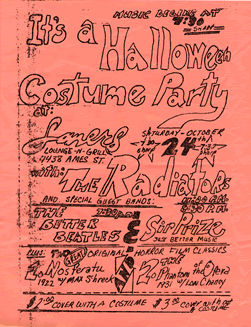 MUSIC BEGINS AT
7:30
It's a Halloween
Costume Party
AT:
LOUNGE-N-GRILL
4438 AMES ST.
SATURDAY-OCTOBER
24
WITH:
THE Radiators
AND SPECIAL GUEST BANDS:
THE
BETTER
BEATLES
&
JUST BETTER MUSIC
PLUS TWO GREAT ORIGINAL HORROR FILM CLASSICS
Nosferatu
1922 W/MAX Shreck
AND
Phantom of the Opera
1931 W/Lon Chaney
COVER WITH A COSTUME
$3.00 COVER WITHOUT
COSTUME